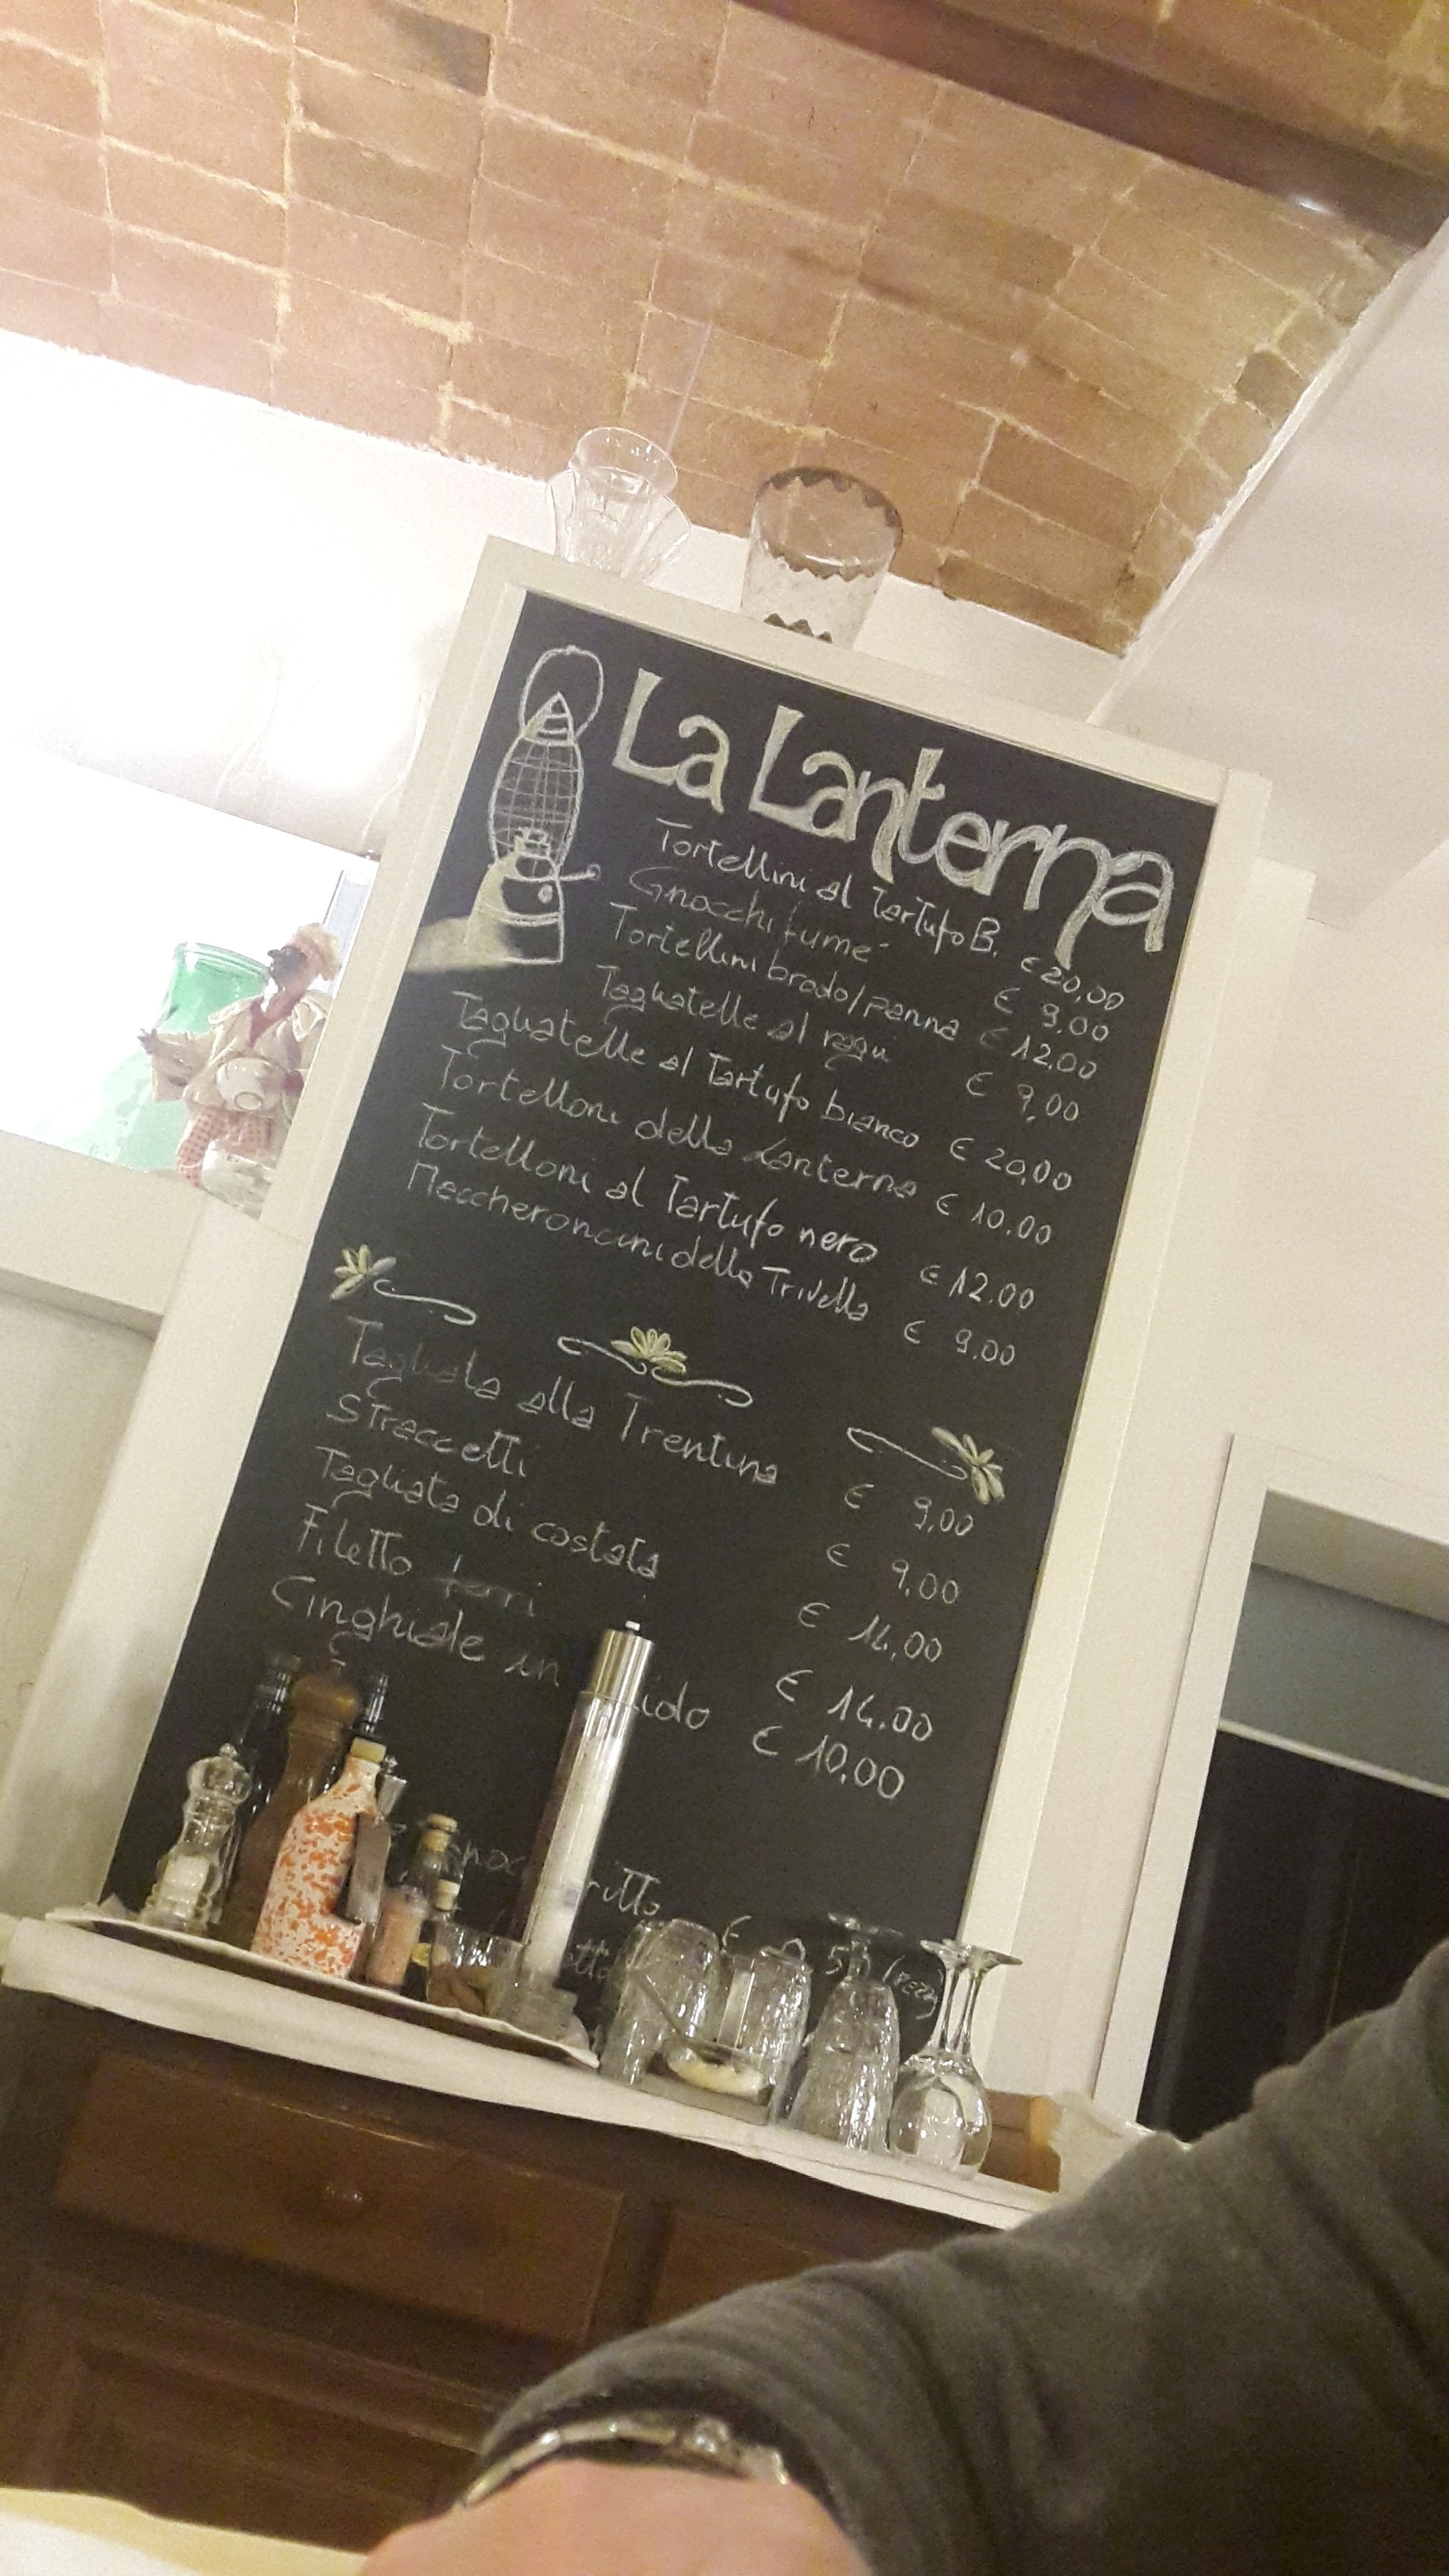 La Lanterna
Tortellini al Tartufo B. € 20,00
Gnocchi fume' € 9.00
Tortellini brodo/panna € 12.00
Tagliatelle al ragu € 9,00
Tagliatelle al Tartufo bianco € 20,00
Tortelloni della Lanterna € 10.00
Tortelloni al Tartufo nero € 12.00
Maccheroncini della Trivella € 9.00
Tagliata alla Trentina € 9,00
Straccetti € 9,00
Tagliata di costata € 14,00
Filetto € 14.00
Cinghiale in € 10,00
€